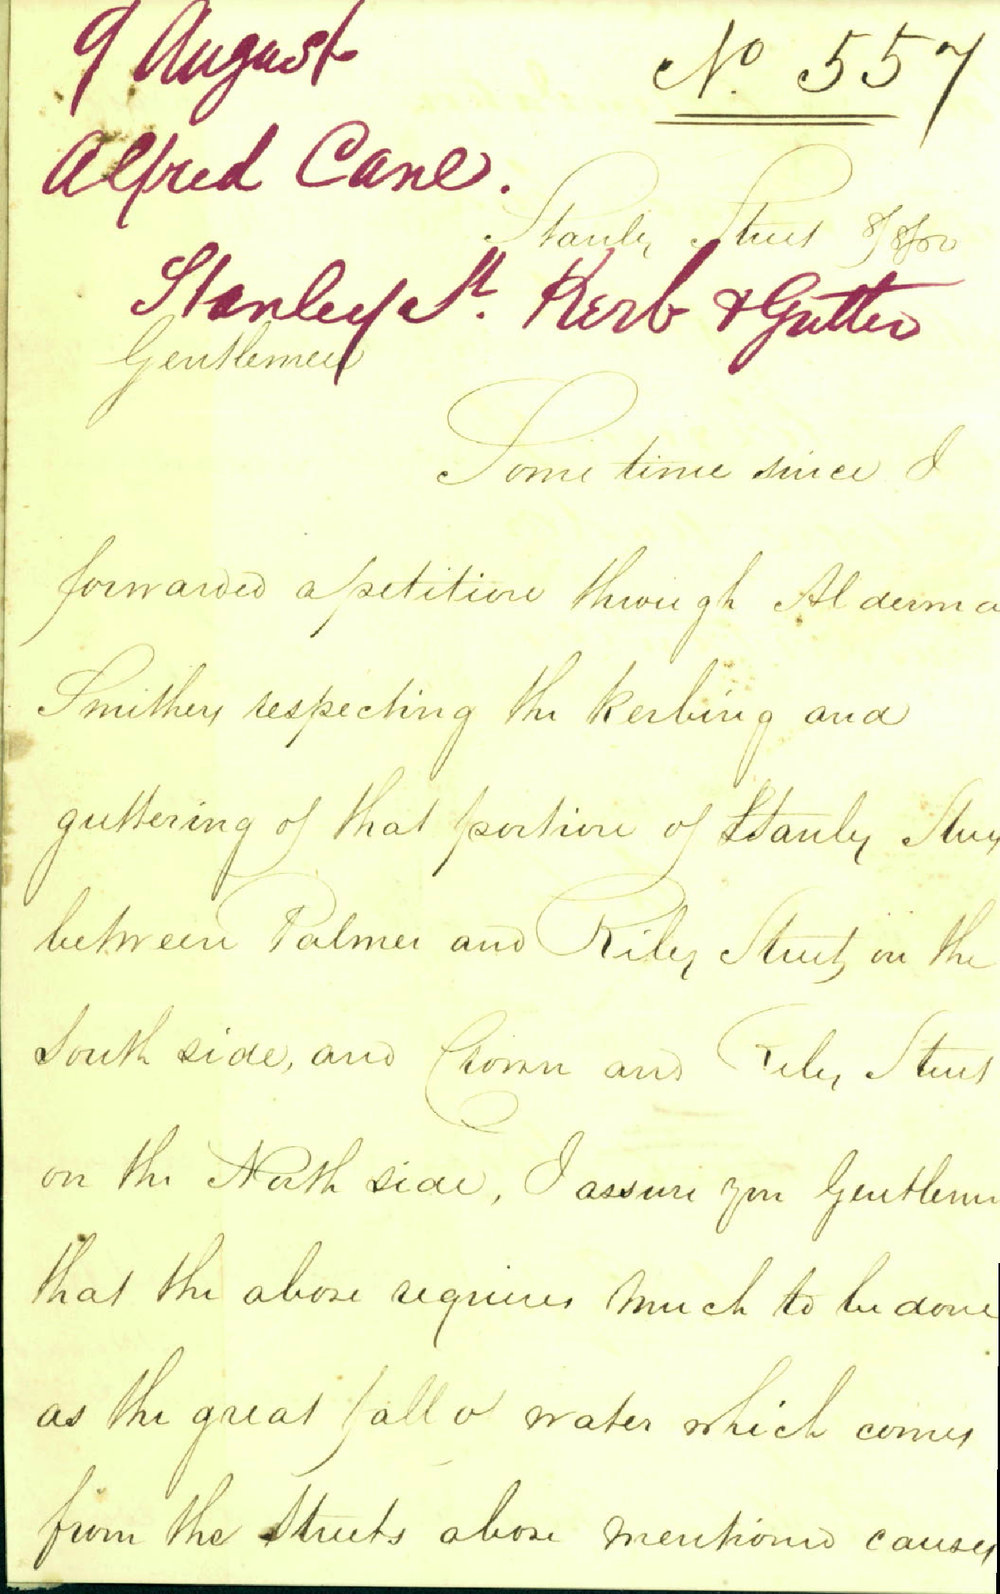 9 August
No. 557
Alfred Cane.
Stanley Street 8/8/
Stanley St. Kerb & Gutter
Gentlemen
Some time since I
forwarded a petition through Alderma
Smithers respecting the kerbing and
guttering of that portion of Stanley Stree
between Palmer and Riley Street on the
South side, and Crown and Riley Street
on the North side, I assure you Gentlemen
that the above requires much to be done
as the great fall of water which comes
from the Streets above mentioned causes